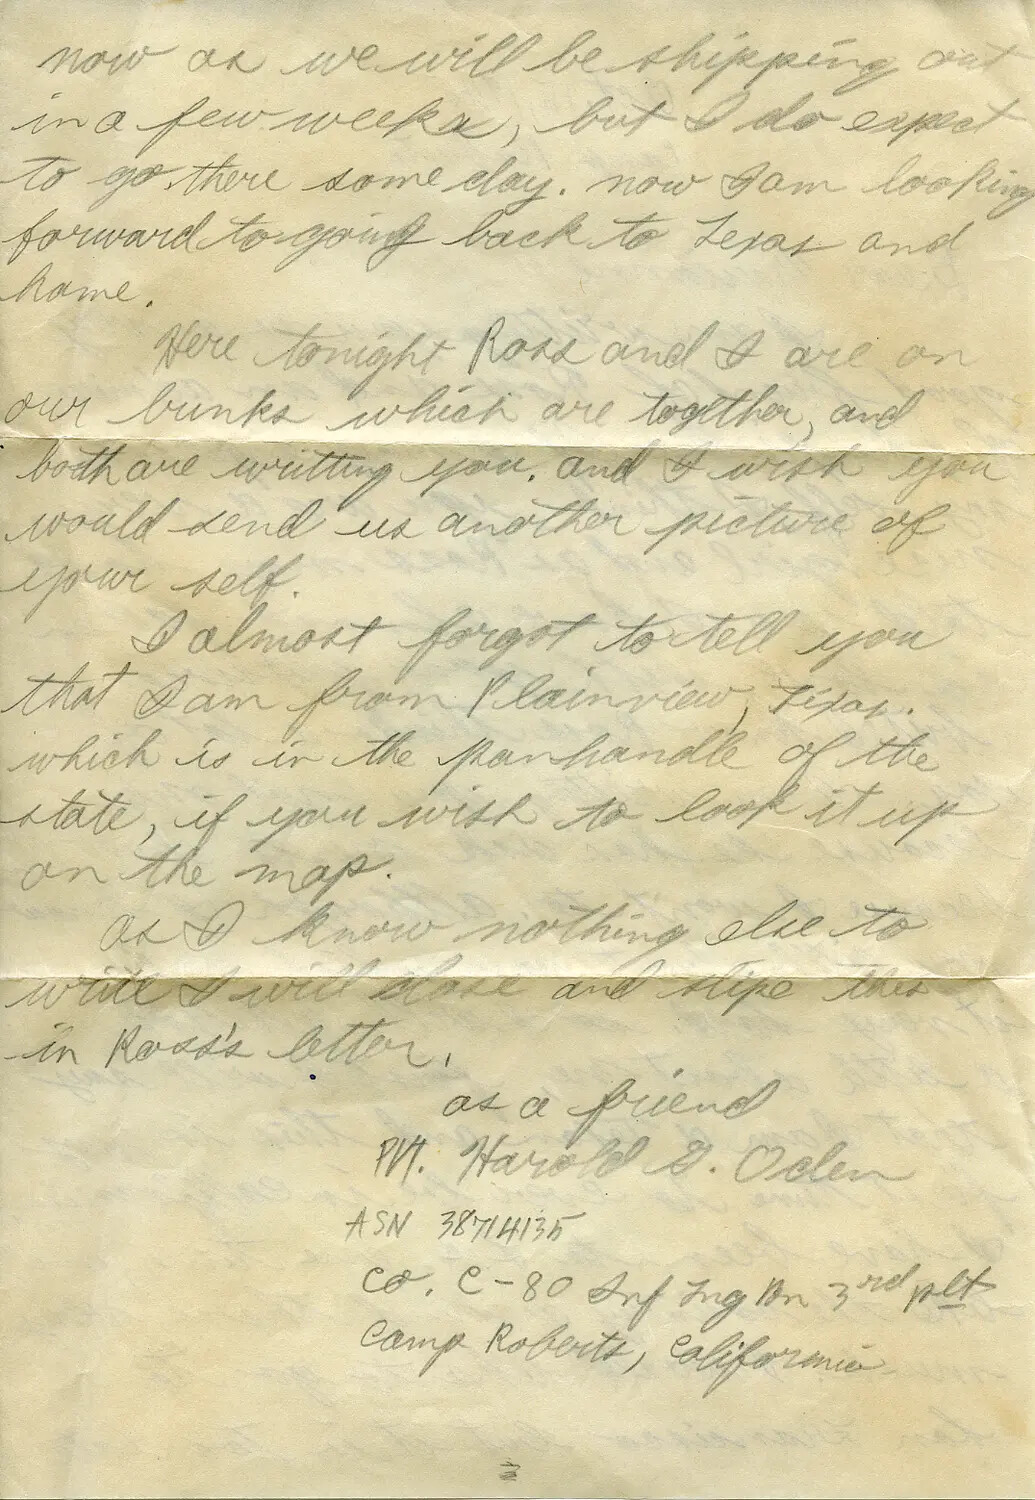 now as we will be shipping out
in a few weeks, but I do expect
to go there some day. now I am looking
forward to going back to Texas and
home.
Here tonight Ross and I are on
our bunks which are together, and
both are writting you. and I wish you
would send us another picture of
your self.
I almost forgot to tell you
that I am from Plainview, Texas.
which is in the panhandle of the
state, if you wish to look it up
on the map.
as I know nothing else to
write I will close and slipe this
in Ross's letter.
as a friend
Pvt. Harold G. Oden
ASN 38714135
Co. C-80 Inf Tng Bn 3rd plt
Camp Roberts, California
3